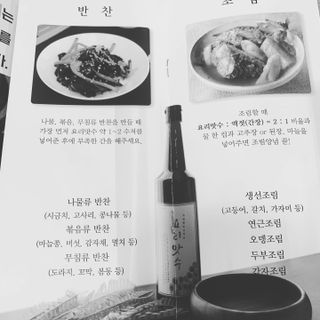 는
를
다.
반 찬
조 림
나물, 볶음, 무침류 반찬을 만들 때
가장 먼저 요리맛수 약 1~2 수저를
넣어준 후에 부족한 간을 해주세요.
조림할 때
요리맛수 : 맥젓(간장) = 2 : 1 비율과
물 한 컵과 고추장 or 된장, 마늘을
넣어주면 조림장념 끝!
나물류 반찬
(시금치, 고사리, 콩나물 등)
볶음류 반찬
(마늘쫑, 버섯, 감자채, 멸치 등)
무침류 반찬
(도라지, 꼬막, 봄동 등)
요리맛수
생선조림
(고등어, 갈치, 가자미 등)
연근조림
오뎅조림
두부조림
감자조림